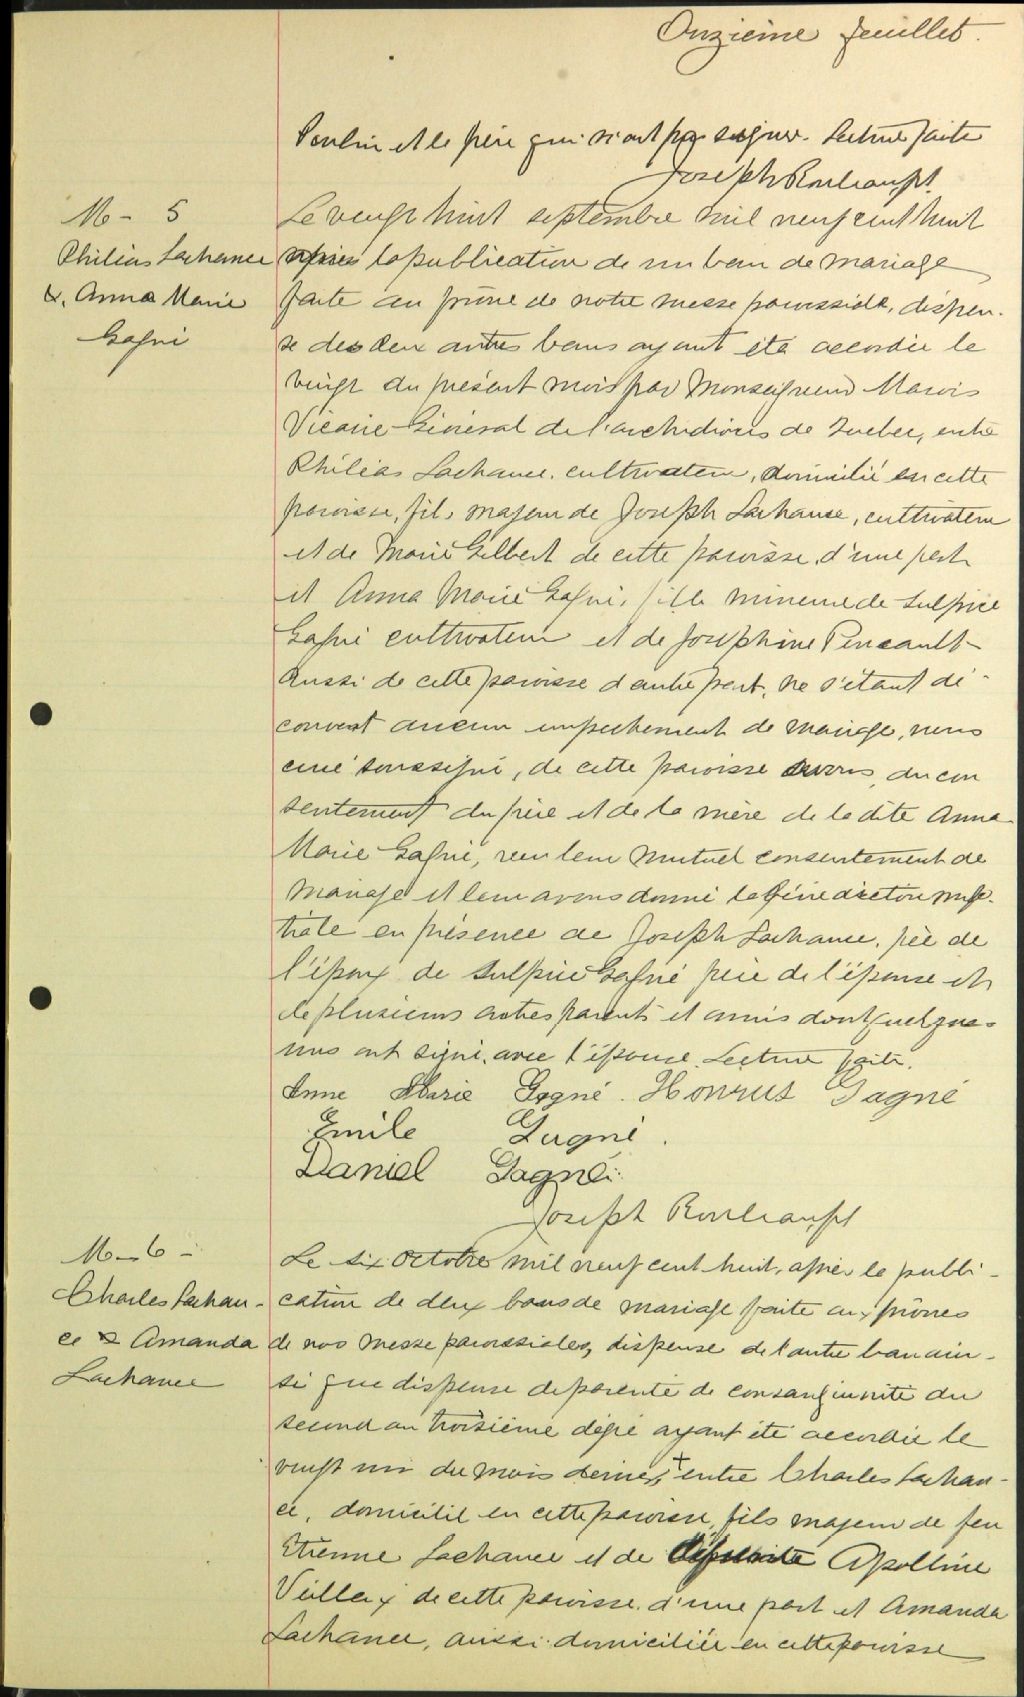 Onzième feuillet.
Poulin et le père qui n'ont pu signer. Lecture faite
Joseph
M - 5
Philias Lachance
&. Anna Marie
Gagné
Le vingt huit septembre mil neuf cent huit
après la publication de un ban de mariage
faite au prône de notre messe paroissiale, dispen-
se des deux autres bans ayant été accordée le
vingt du présent mois par Monseigneur Marois
Vicaire Général de l'archidiocèse de Québec, entre
Philias Lachance, cultivateur, domicilié en cette
paroisse, fils majeur de Joseph Lachance, cultivateur
et de Marie Gilbert de cette paroisse, d'une part
et Anna Marie Gagné, fille mineure de Sulpice
Gagné cultivateur et de Joséphine
aussi de cette paroisse d'autre part, ne s'étant dé-
couvert aucun empêchement de mariage, nous
curé soussigné, de cette paroisse avons, du con
sentement du père et de la mère de la dite Anna
Marie Gagné, reçu leur mutuel consentement de
mariage et leur avons donné la bénédiction nup-
tiale en présence de Joseph Lachance, père de
l'époux de Sulpice Gagné père de l'épouse et
de plusieurs autres parents et amis dont quelques-
uns ont signé avec l'épouse. Lecture faite.
Anne Marie Gagné. Gagné
Emile Gagné.
Daniel Gagné
Joseph
M - 6 -
Charles Lachan-
ce & Amanda
Lachance
Le six Octobre mil neuf cent huit, après la publi-
cation de deux bans de mariage faite aux prônes
de nos messe paroissiales, dispense de l'autre ban ain-
si que dispense de parenté de consanguinité du
second au troisième dégré ayant été accordée le
vingt un du mois dernier, + entre Charles Lachan-
ce, domicilié en cette paroisse, fils majeur de feu
Etienne Lachance et de Apolline
Veilleux de cette paroisse, d'une part et Amanda
Lachance, aussi domiciliée en cette paroisse